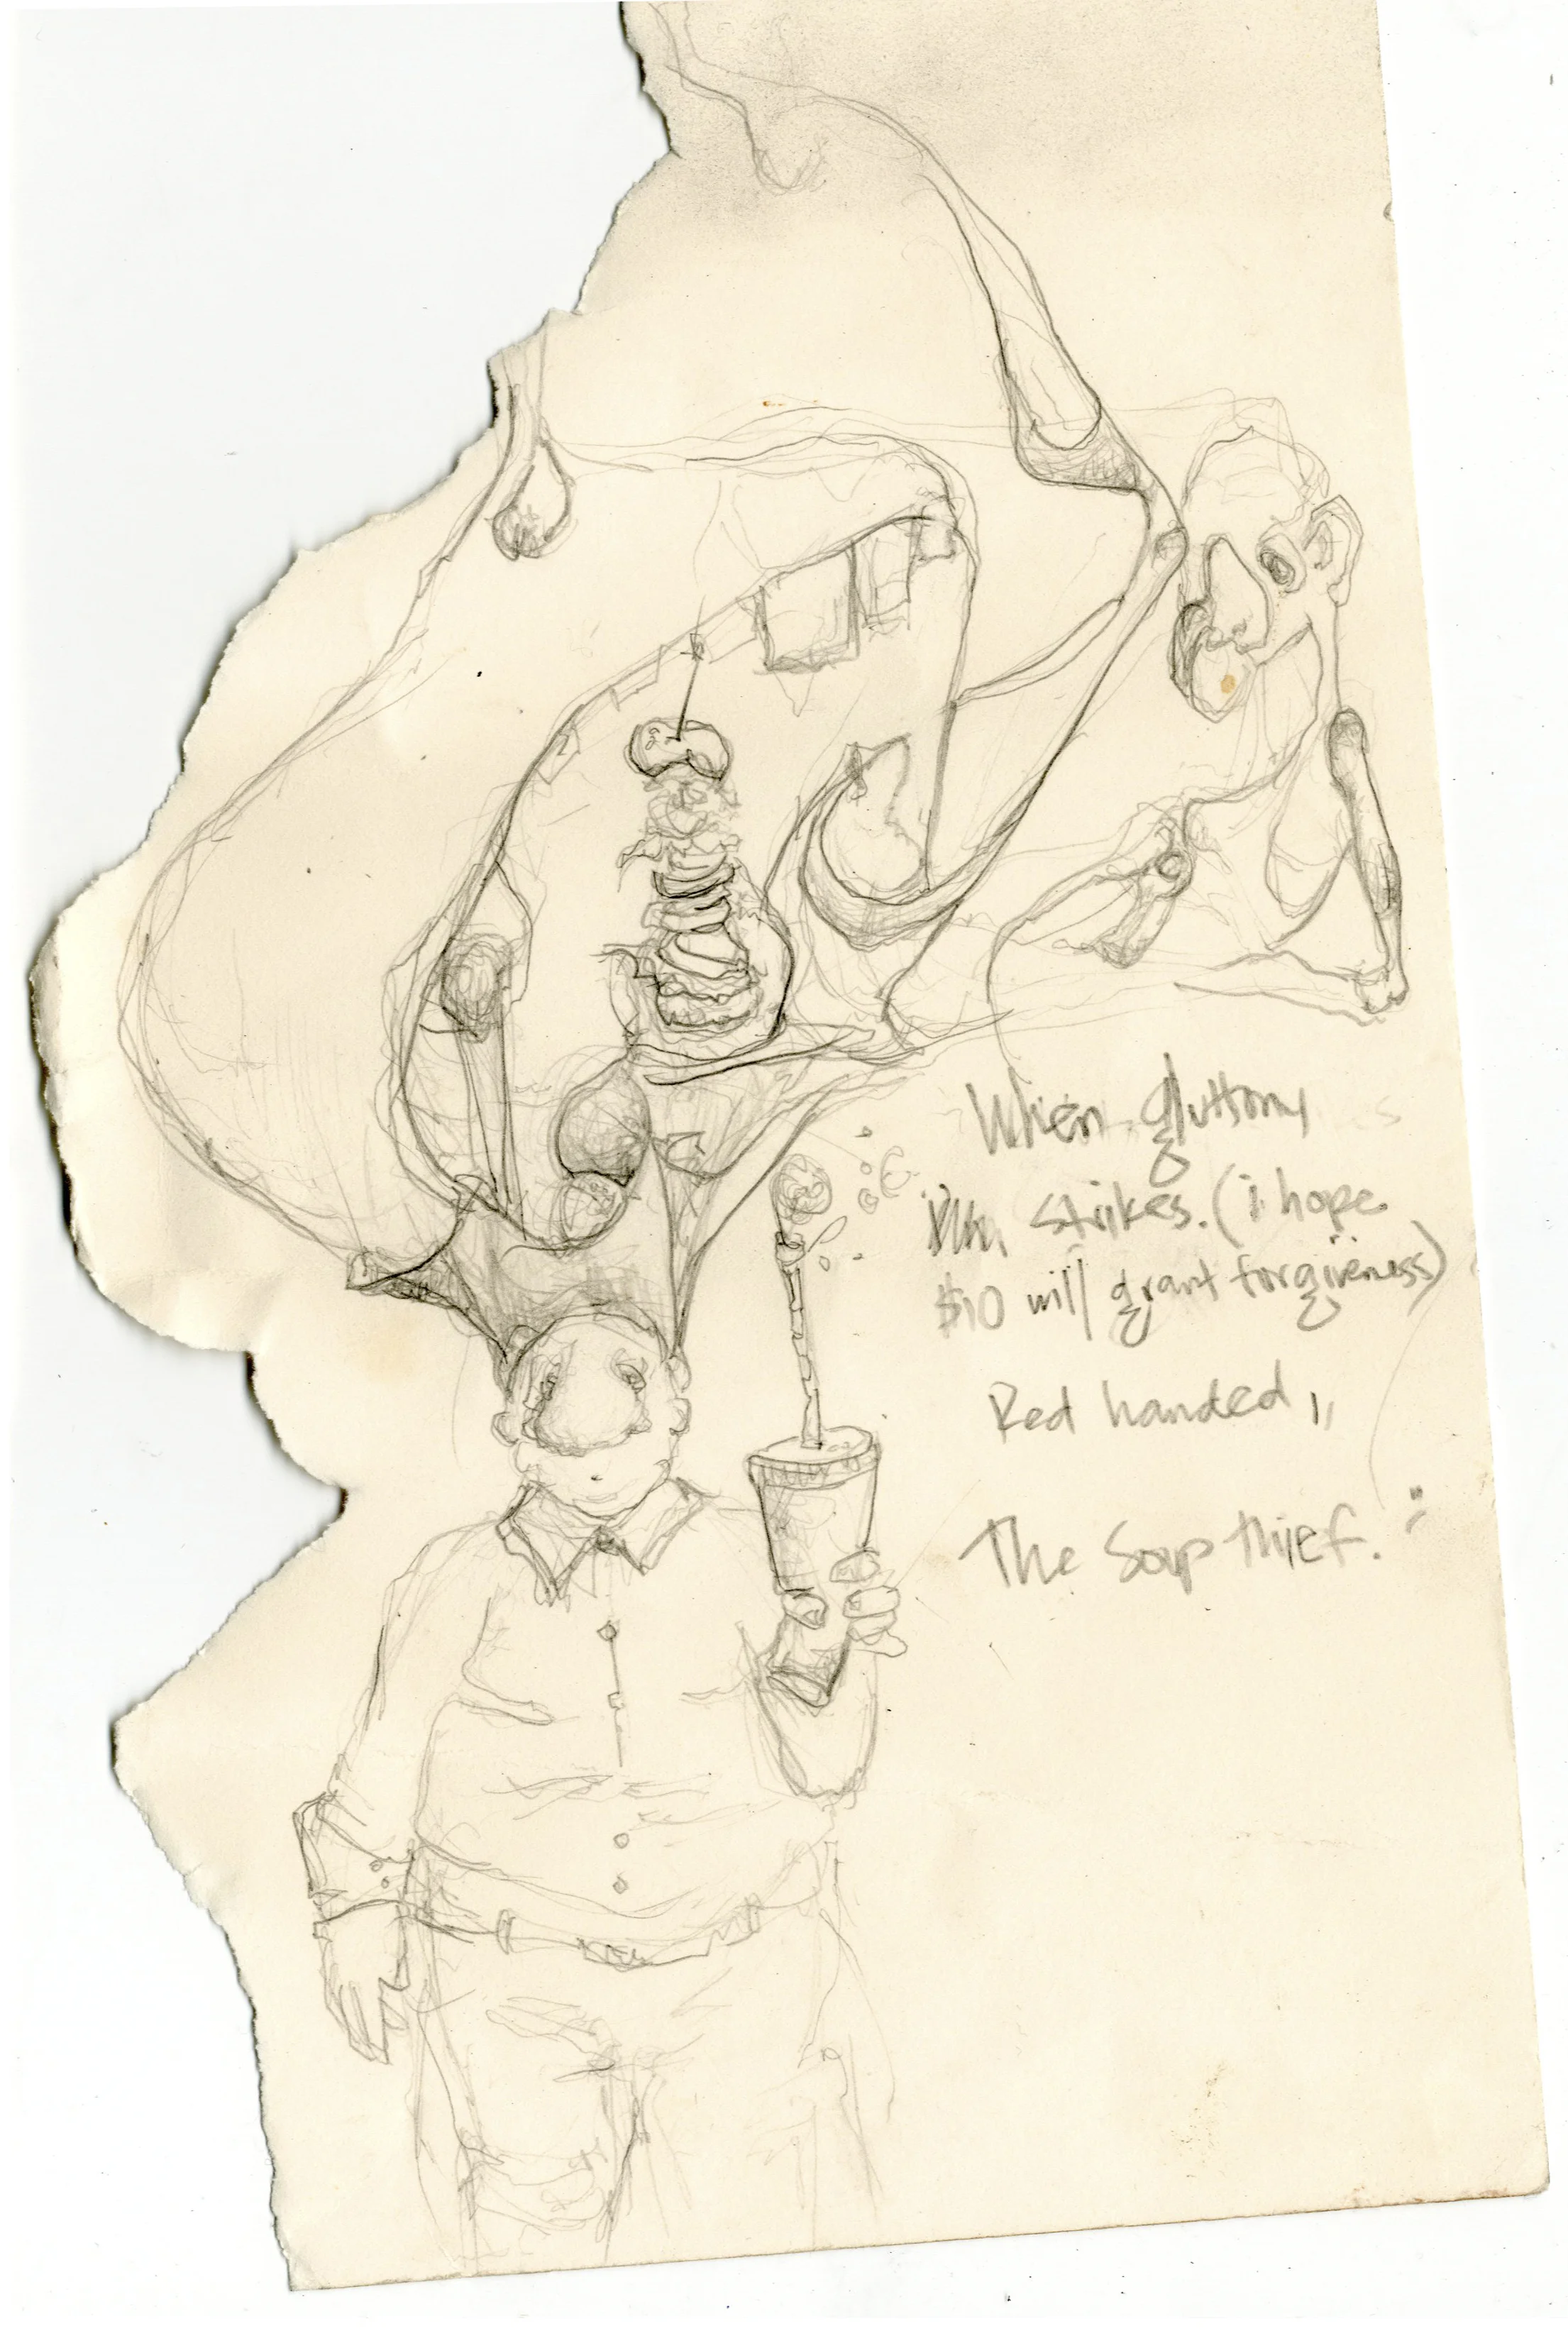 When gluttony
strikes. (i hope
$10 will grant forgiveness)
Red handed,,
The Soap thief.